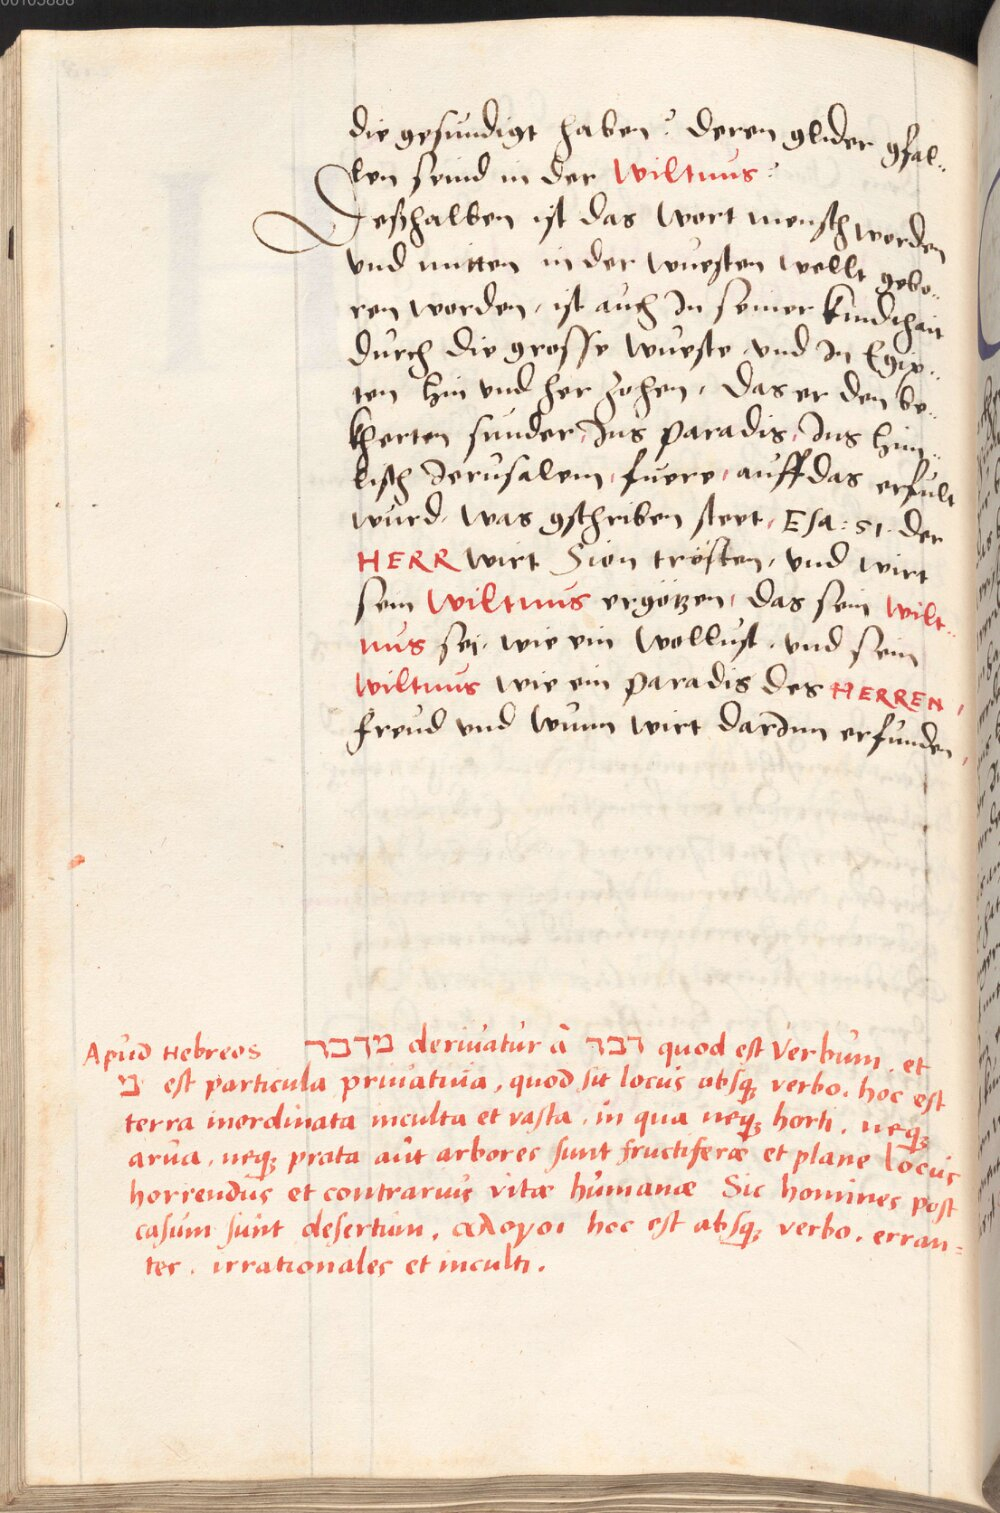 00105888
die gesundigt haben? deren glider gfal¬
len seind in der Wiltnus:
Deßhalben ist das wort mensch worden
vnd mitten in der wuesten wellt gebo¬
ren worden, ist auch In seiner kindthait
durch die grosse wueste vnd In Egip¬
ten hin vnd her zohen, das er den be¬
kherten sunder, Ins paradis, Ins himl¬
lisch Jerusalem, fuere, auff das erfult
wurd, was gschriben steet, Esa: 51. der
HERR wirt Sion trösten, vnd wirt
sein Wiltnus ergötzen, das sein wilt¬
nus sei, wie ein wollust, vnd sein
wiltnus wie ein paradis des HERREN,
freud vnd wunn wirt darInn erfunden,
Apud Hebreos מדבר deriuatur à דבר quod est Verbum, et
מ est particula priuatiuia, quod sit locus absq; verbo, hoc est
terra inordinata inculta et vasta, in qua neq; horti, neq;
arua, neq; prata aut arbores sunt fructiferæ et plane locus
horrendus et contrarius vitæ humanæ Sic homines post
casum sunt desertum, αλογοι hoc est absq; verbo, erran=
tes, irrationales et inculti.